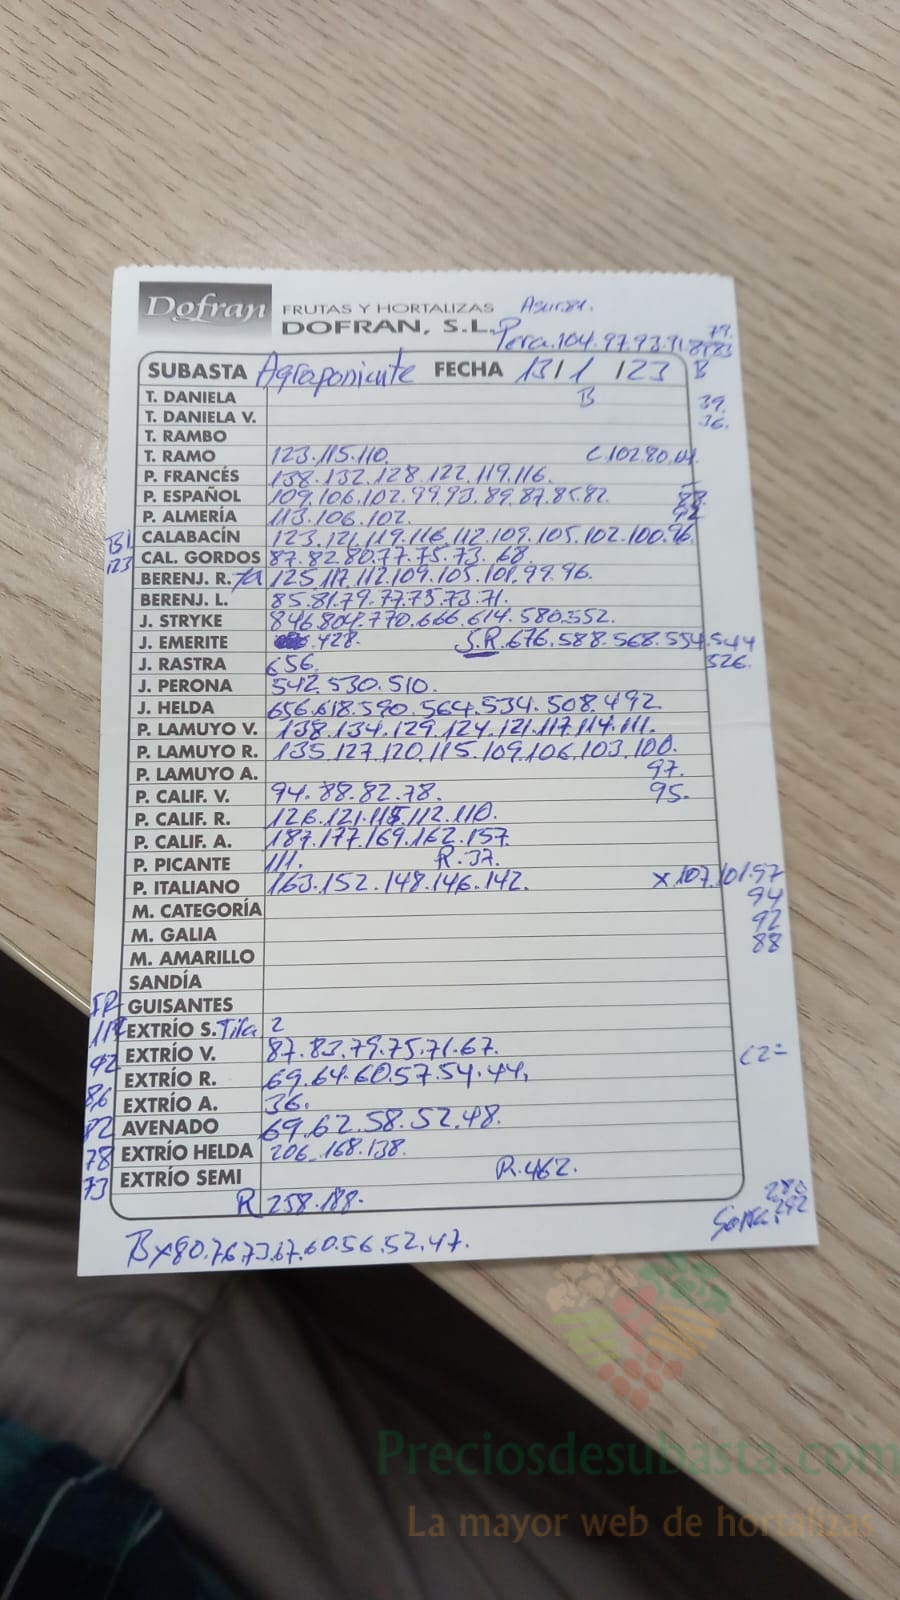 Dofran FRUTAS Y HORTALIZAS
DOFRAN, S.L.
Asur.81.
Pera.104.97.93.91.87.83
79.
SUBASTA Agraponiente FECHA 13/1/23 B
T. DANIELA B 39.
T. DANIELA V. 36.
T. RAMBO
T. RAMO 123.115.110. C.102.80.
P. FRANCÉS 138.132.128.122.119.116.
P. ESPAÑOL 109.106.102.99.93.89.87.85.82.
P. ALMERÍA 113.106.102.
BL CALABACÍN 123.121.119.116.112.109.105.102.100.96.
123 CAL. GORDOS 87.82.80.77.75.73.68.
BERENJ. R. 125.117.112.109.105.101.99.96.
BERENJ. L. 85.81.79.77.75.73.71.
J. STRYKE 846.804.770.666.614.580.552.
J. EMERITE .428. S.R.676.588.568.554.544
J. RASTRA 656. 526.
J. PERONA 542.530.510.
J. HELDA 656.618.590.564.534.508.492.
P. LAMUYO V. 138.134.129.124.121.117.114.111.
P. LAMUYO R. 135.127.120.115.109.106.103.100.
P. LAMUYO A. 97.
P. CALIF. V. 94.88.82.78. 95.
P. CALIF. R. 126.121.115.112.110.
P. CALIF. A. 187.177.169.162.157.
P. PICANTE 111. R.37.
P. ITALIANO 163.152.148.146.142. x107.101.97
M. CATEGORÍA 94
M. GALIA 92
M. AMARILLO 88
SANDÍA
GUISANTES
EXTRÍO S. 2
92 EXTRÍO V. 87.83.79.75.71.67. C2=
EXTRÍO R. 69.64.60.57.54.44.
86 EXTRÍO A. 36.
82 AVENADO 69.62.58.52.48.
78 EXTRÍO HELDA 206.168.138.
73 EXTRÍO SEMI R.462.
R 258.188.
280
292
Bx80.76.73.67.60.56.52.47.
Preciosdesubasta.com
La mayor web de hortalizas